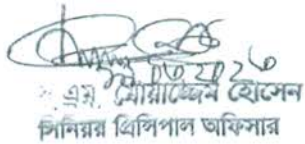 এম. মোয়াজ্জেম হোসেন
সিনিয়র প্রিন্সিপাল অফিসার